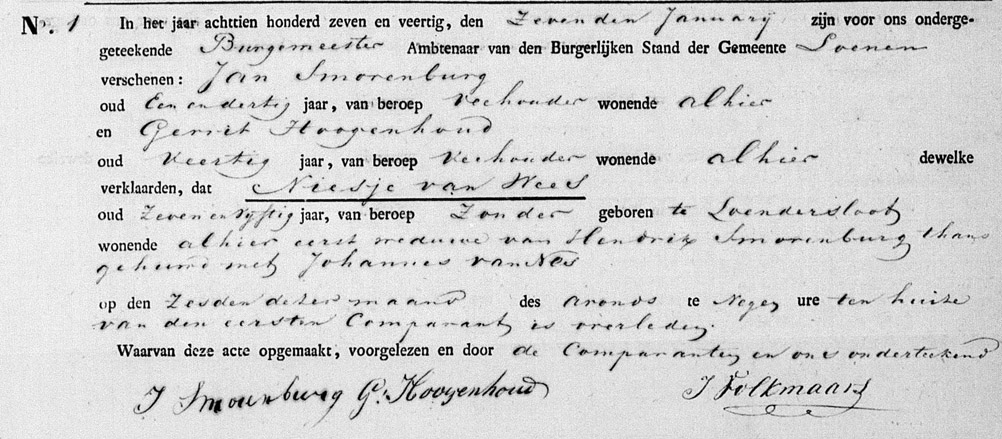 N°. 1 In het jaar achttien honderd zeven en veertig, den Zevenden January zijn voor ons onderge-
geteekende Burgemeester Ambtenaar van den Burgerlijken Stand der Gemeente Loenen
verschenen: Jan Smorenburg
oud Een en dertig jaar, van beroep Veehouder wonende alhier
en Gerrit Hoogenhoud
oud Veertig jaar, van beroep Veehouder wonende alhier dewelke
verklaarden, dat Niesje van Wees
oud Zeven en Vyftig jaar, van beroep Zonder geboren te Loendersloot
wonende alhier eerst weduwe van Hendrik Smorenburg thans
gehuwd met Johannes van Nes
op den Zesden dezer maand des avonds te Negen ure ten huize
van den eersten Comparant is overleden.
Waarvan deze acte opgemaakt, voorgelezen en door de Comparanten en ons onderteekend
J Smorenburg G. Hoogenhoud J Folkmaars